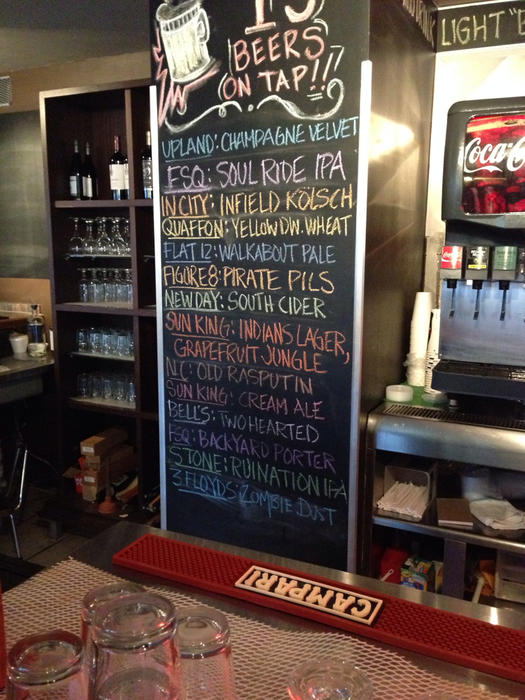 15
BEERS
ON TAP!!
UPLAND: CHAMPAGNE VELVET
FSQ: SOUL RIDE IPA
IN CITY: INFIELD KÖLSCH
QUAFFON: YELLOW DW. WHEAT
FLAT 12: WALKABOUT PALE
FIGURE 8: PIRATE PILS
NEW DAY: SOUTH CIDER
SUN KING: INDIANS LAGER,
GRAPEFRUIT JUNGLE
N.C: OLD RASPUTIN
SUN KING: CREAM ALE
BELL'S: TWO HEARTED
FSQ: BACKYARD PORTER
STONE: RUINATION IPA
3 FLOYDS: ZOMBIE DUST
LIGHT
Coca-C
CAMPARI